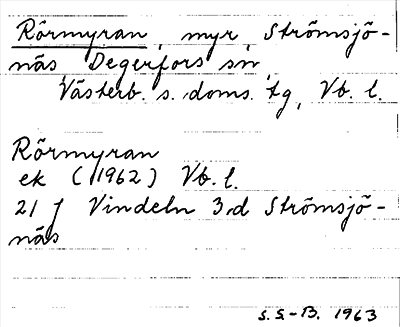 Rörmyran, myr, Strömsjö-
näs Degerfors sn,
Västerb. s. doms. tg, Vb. l.
Rörmyran
ek (1962) Vb. l.
21 f Vindeln 3d Strömsjö-
näs
S. S.-B. 1963